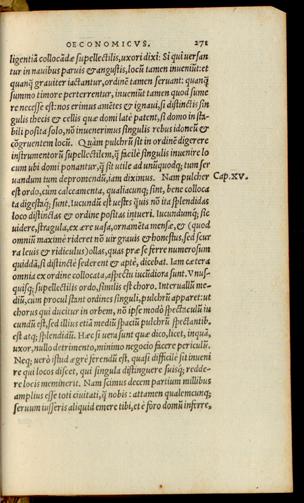 OECONOMICVS. 271
ligentiā collocādæ supellectilis, uxori dixi: Si qui uersan
tur in nauibus paruis & angustis, locū tamen inueniūt: et
quanq̃ grauiter iactantur, ordinē tamen seruant: quanq̃
summo timore perterrentur, inueniūt tamen quod sume
re necesse est: nos erimus amētes & ignaui, si distinctis sin
gulis thecis & cellis quæ domi latè patent, si domo in sta
bili posita solo, nō inuenerimus singulis rebus idoneū &
cōgruentem locū. Quàm pulchrū sit in ordinē digerere
instrumentorū supellectilem, q̃ facilè singulis inuenire lo
cum ubi domi ponantur, q̃ sit utile ad unūquodq; tum ser
uandum tum depromendū, iam diximus. Nam pulcher Cap.XV.
est ordo, cum calceamenta, qualiacunq; sint, bene colloca
ta digestáq; sunt. iucundū est uestes q̃uis nō ita splendidas
loco distinctas & ordine positas intueri. iucundumq́; sic
uidere, stragula, ex ære uasa, ornamēta mensæ, & (quod
omniū maximè rideret nō uir grauis & honestus, sed scur
ra leuis & ridiculus) ollas, quas præ se ferre numerosum
quiddā, si distinctè sederent & aptè, dicebat. Iam cætera
omnia ex ordine collocata, aspectu iucūdiora sunt. Vnus-
quisq; supellectilis ordo, similis est choro. Interuallū me-
diū, cum procul stant ordines singuli, pulchrū apparet: ut
chorus qui ducitur in orbem, nō ipse modò spectaculū iu
cundū est, sed illius etiā mediū spaciū pulchrū spectantib.
est atq; splendidū. Hæc si uera sunt quæ dico, licet, inquā,
uxor, nullo detrimento, minimo negocio facere periculū.
Neq; uerò istud ægrè ferendū est, quasi difficilè sit inueni
re qui locos discet, qui singula distinguere suisq́; redde-
re locis meminerit. Nam scimus decem partium millibus
amplius esse toti ciuitati, q̃ nobis: attamen qualemcunq;
seruum iusseris aliquid emere tibi, et è foro domū inferre,